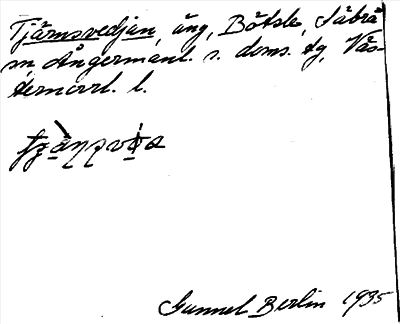 Tjärnsvedjan, äng, Bölsle, Säbrå
sn, Ångermanl. s. doms. dg, Väs-
ternorrl. l.
Gunnel Berlin 1935